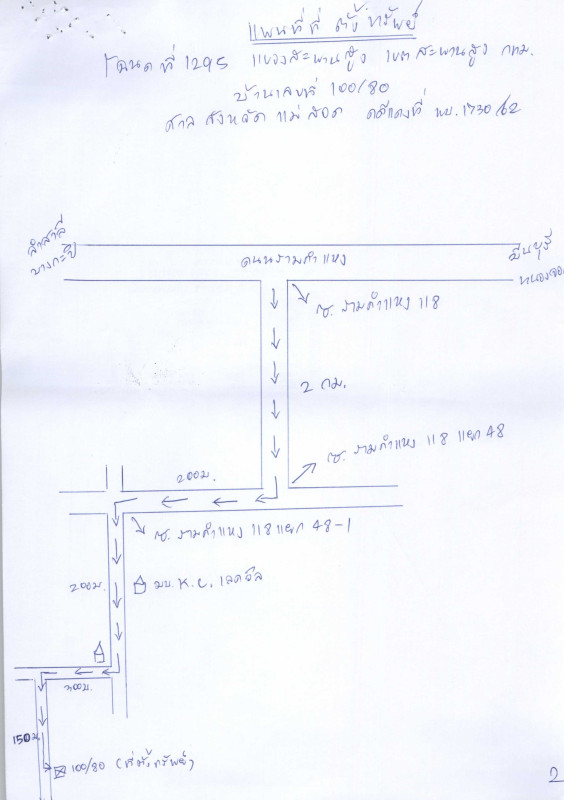 แผนที่ที่ตั้งทรัพย์
โฉนดที่ 1295 แขวงสะพานสูง เขตสะพานสูง กทม.
บ้านเลขที่ 100/80
ศาลจังหวัดแม่สอด คดีแดงที่ ผบ.1730/62
ลำสาลี
บางกะปิ
ถนนรามคำแหง
มีนบุรี
หนองจอก
ซ. รามคำแหง 118
2 กม.
ซ. รามคำแหง 118 แยก 48
200ม.
ซ. รามคำแหง 118 แยก 48-1
200ม.
มบ. K.C. เลควิล
300ม.
150ม
100/80 (ที่ตั้งทรัพย์)
2